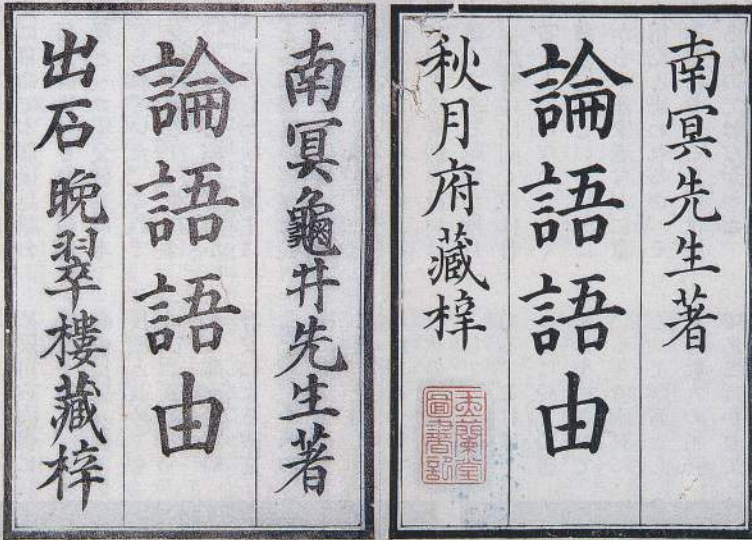 南冥先生著
論語語由
秋月府藏梓
南冥龜井先生著
論語語由
出石晚翠樓藏梓